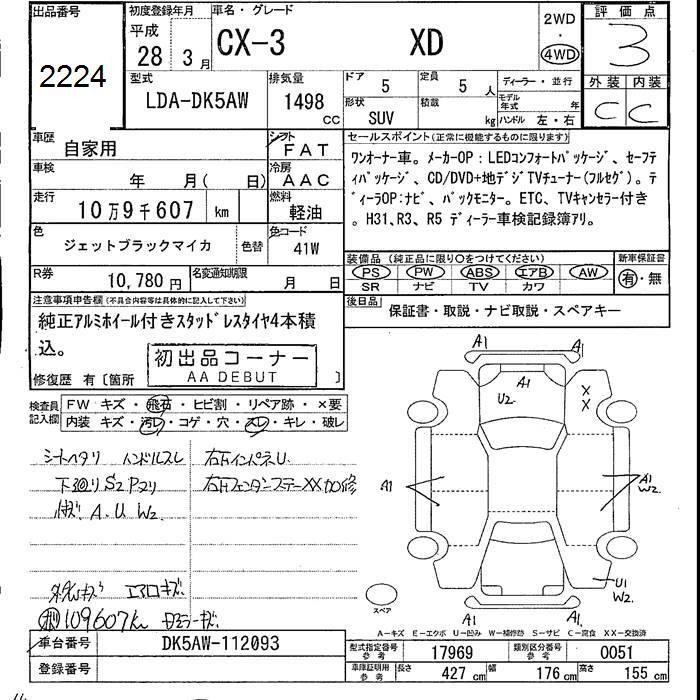 出品番号
2224
初度登録年月
平成
28 3月
車名・グレード
CX-3 XD
2WD
・
4WD
評価点
3
型式
LDA-DK5AW
排気量
1498
cc
ドア
5
定員
5人
形状
SUV
積載
kg
ディーラー・並行
モデル年式 年
ハンドル 左・右
外装 内装
C C
車歴
自家用
シフト
FAT
車検
年 月( 日)
冷房
AAC
走行
10万9千607 km
燃料
軽油
色
ジェットブラックマイカ
色替
色コード
41W
R券
10,780円
名変通知期限
月 日
セールスポイント(正常に機能するものに限ります)
ワンオーナー車。メーカーOP：LEDコンフォートパッケージ、セーフ
ティパッケージ、CD/DVD+地デジTVチューナー(フルセグ)。デ
ィーラOP:ナビ、バックモニター。ETC、TVキャンセラー付き
。H31、R3、R5 ディーラー車検記録簿アリ。
装備品 (純正品に限り○をつけてください)
新車保証書
PS PW ABS エアB AW
SR ナビ TV カワ
有・無
後日品
保証書・取説・ナビ取説・スペアキー
注意事項申告欄(不具合内容等は具体的に記入して下さい)
純正アルミホイール付きスタッドレスタイヤ4本積
込。
初出品コーナー
AA DEBUT
修復歴 有〔箇所 〕
検査員
記入欄
FW キズ・飛石・ヒビ割・リペア跡・×要
内装 キズ・汚レ・コゲ・穴・スレ・キレ・破レ
シートヘタリ ハンドルスレ
右Fインパネ U.
下廻りS2 Pヌリ
右Fフェンダーステー XX加修
A. U W2
109607km
A1 A1
A1
U2
X
X
A1
A1
W2
U1
W2
A1 A1
スペア
A－キズ E－エクボ U－凹み W－補修跡 S－サビ C－腐食 XX－交換済
車台番号
DK5AW-112093
登録番号
型式指定番号
参考
17969
類別区分番号
参考
0051
車庫証明用
参考
長さ 427 cm 幅 176 cm 高さ 155 cm